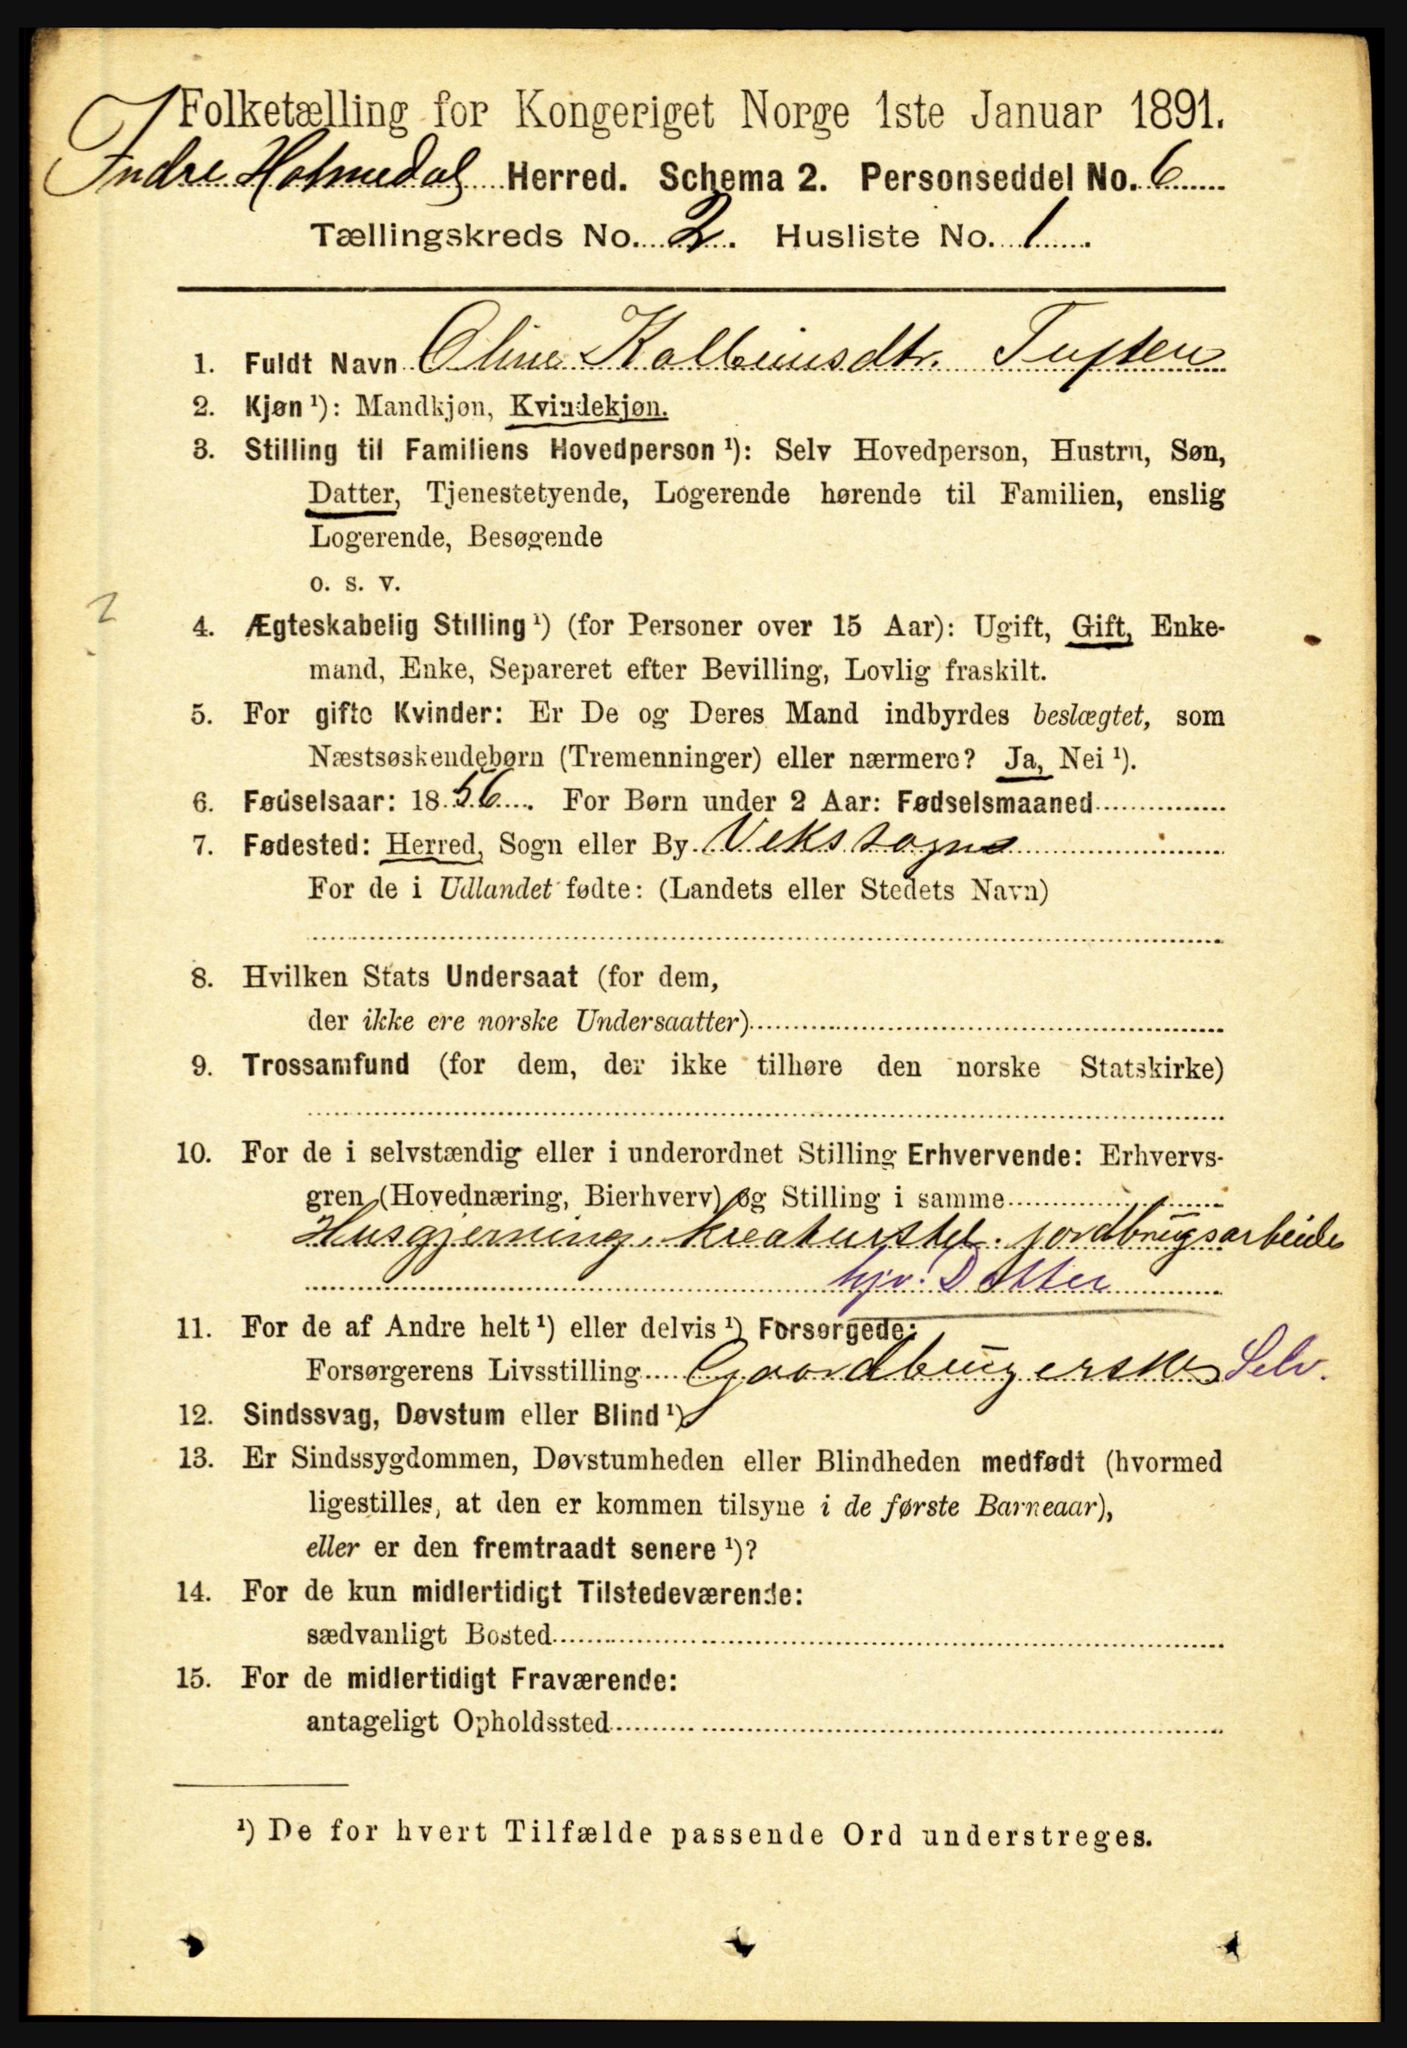 Folketælling for Kongeriget Norge 1ste Januar 1891.
Indre Holmedal Herred. Schema 2. Personseddel No. 6
Tællingskreds No. 2. Husliste No. 1.
1. Fuldt Navn Oline Kolbeinsdtr. Tuften
2. Kjøn ¹): Mandkjøn, Kvindekjøn.
3. Stilling til Familiens Hovedperson ¹): Selv Hovedperson, Hustru, Søn,
Datter, Tjenestetyende, Logerende hørende til Familien, enslig
Logerende, Besøgende
o. s. v.
2
4. Ægteskabelig Stilling ¹) (for Personer over 15 Aar): Ugift, Gift, Enke-
mand, Enke, Separeret efter Bevilling, Lovlig fraskilt.
5. For gifte Kvinder: Er De og Deres Mand indbyrdes beslægtet, som
Næstsøskendebørn (Tremenninger) eller nærmere? Ja, Nei ¹).
6. Fødselsaar: 1856. For Børn under 2 Aar: Fødselsmaaned
7. Fødested: Herred, Sogn eller By Veks sogn
For de i Udlandet fødte: (Landets eller Stedets Navn)
8. Hvilken Stats Undersaat (for dem,
der ikke ere norske Undersaatter)
9. Trossamfund (for dem, der ikke tilhøre den norske Statskirke)
10. For de i selvstændig eller i underordnet Stilling Erhvervende: Erhvervs-
gren (Hovednæring, Bierhverv) og Stilling i samme
Husgjerning, kreaturstel. jordbrugsarbeide
hjv. Datter
11. For de af Andre helt ¹) eller delvis ¹) Forsørgede:
Forsørgerens Livsstilling Gaardbrugerske Selv.
12. Sindssvag, Døvstum eller Blind ¹).
13. Er Sindssygdommen, Døvstumheden eller Blindheden medfødt (hvormed
ligestilles, at den er kommen tilsyne i de første Barneaar),
eller er den fremtraadt senere ¹)?
14. For de kun midlertidigt Tilstedeværende:
sædvanligt Bosted
15. For de midlertidigt Fraværende:
antageligt Opholdssted
¹) De for hvert Tilfælde passende Ord understreges.